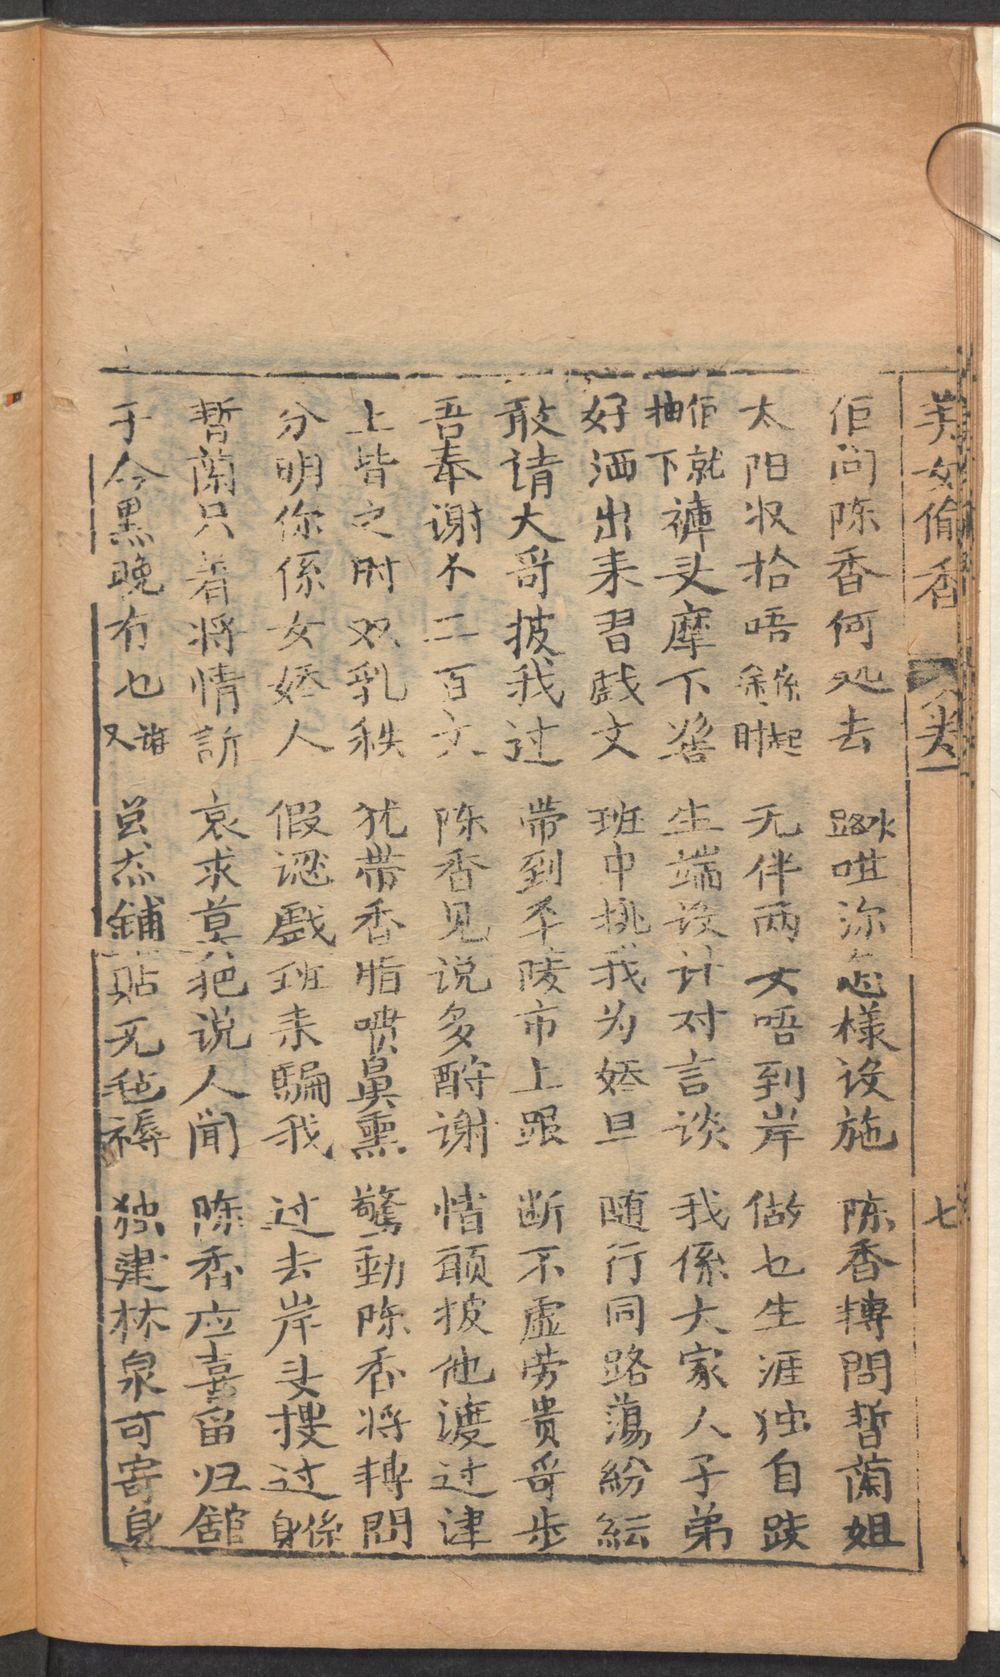 美女偷香 卷一 七
佢问陈香何处去 水路咁沵怎樣设施 陈香轉問晢蘭姐
太阳收拾唔係起身时 无伴两女唔到岸 做乜生涯独自跂
佢就抽下褲头摩下窖 生端设计对言谈 我係大家人子弟
好洒出来習戲文 班中挑我为娇旦 随行同路蕩紛紜
敢请大哥披我过 带到平陵市上跟 断不虚劳贵哥步
吾奉谢不二百文 陈香见说多酧谢 惜願披他渡过津
上背之时双乳秩 犹带香脂喷鼻熏 驚動陈香将轉問
分明你係女娇人 假認戲班来騙我 过去岸头搜过係身
晢蘭只着将情訴 哀求莫把说人聞 陈香应喜留归舘
于今黑晚冇乜又 虽然鋪贴无毡褥 独建林泉可寄身